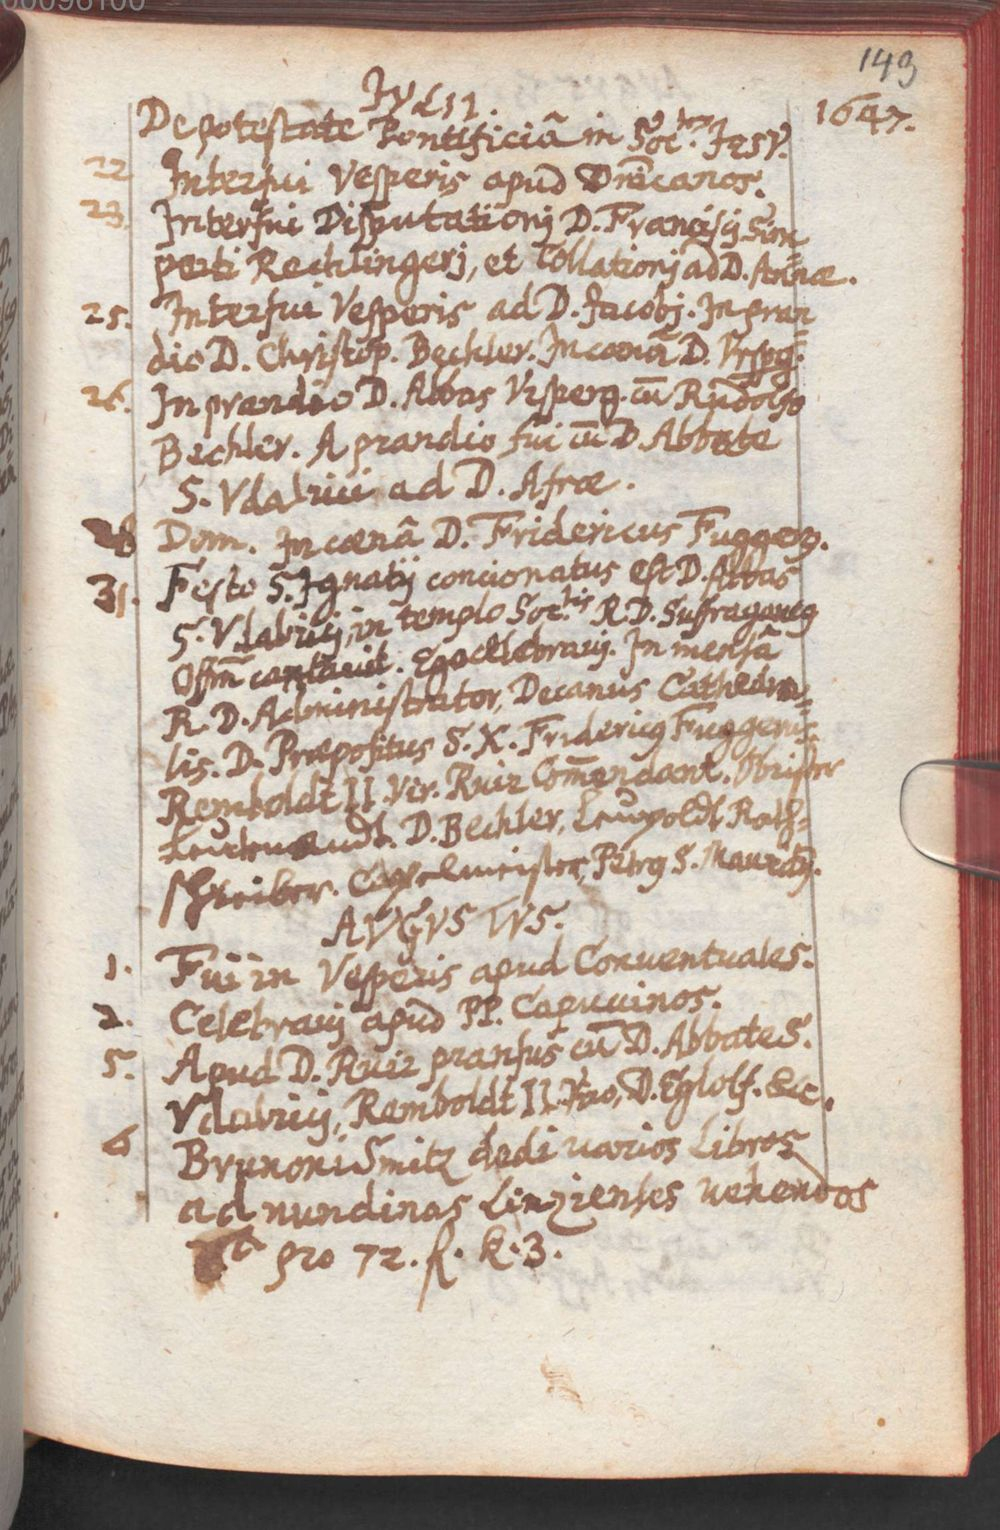 00096100
149
IVLII. 1647.
De potestate Pontificiâ in Soc.tem IESV.
22 Interfui Vesperis apud Dñicanos.
23. Interfui Disputationj D. Francisij Sim=
perti Rechlingerj, et Collationj ad D. Annæ.
25. Interfui Vesperis ad D. Jacobj. In pran
dio D. Christop. Bechler. In cœnâ D. Vrsperg.
26. In prandio D. Abbas Vrsperg. cū Rudolfo
Bechler. A prandio fui cū D. Abbate
S. Vdalrici ad D. Afræ.
28 Dom. In cœnâ D. Fridericus Fuggerg.
31. Festo S. Ignatij concionatus est D. Abbas
S. Vdalricij, in templo Soc.tis R. D. Suffraganeg
Offm̄ cantauit. Ego celebrauj. In mensâ
R. D. Administrator, Decanus Cathedra=
lis. D. Præpositus S. X. Fridericg Fuggerus.
Remboldt II. Vir. Ruiz Com̄endant. Obrister
Leutenandt. D. Bechler, Leupoldt Rath=
schreiber. Capelmeister, Petrg S. Mauritij.
AVGVSTVS.
1. Fui in Vesperis apud Conuentuales.
2. Celebrauj apud PP. Capucinos.
5. Apud D. Ruiz pransus cū D. Abbate S.
Vdalricij, Remboldt II. Viro, D. Eglolf. &c.
6 Brunoni Smitz dedi varios Libros
ad nundinas Linzienses vehendos
pro 72. fl. k. 3.